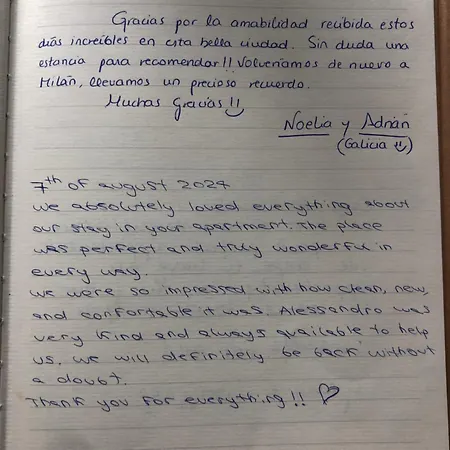 Gracias por la amabilidad recibida estos
días increíbles en esta bella ciudad. Sin duda una
estancia para recomendar!! Volveríamos de nuevo a
Milán, llevamos un precioso recuerdo.
Muchas Gracias!!
Noelia y Adrián
(Galicia !!)
7th of august 2024
we absolutely loved everything about
our stay in your apartment. The place
was perfect and truly wonderful in
every way.
we were so impressed with how clean, new,
and confortable it was. Alessandro was
very kind and always available to help
us. we will definitely be back without
a doubt.
Thank you for everything!! ♡